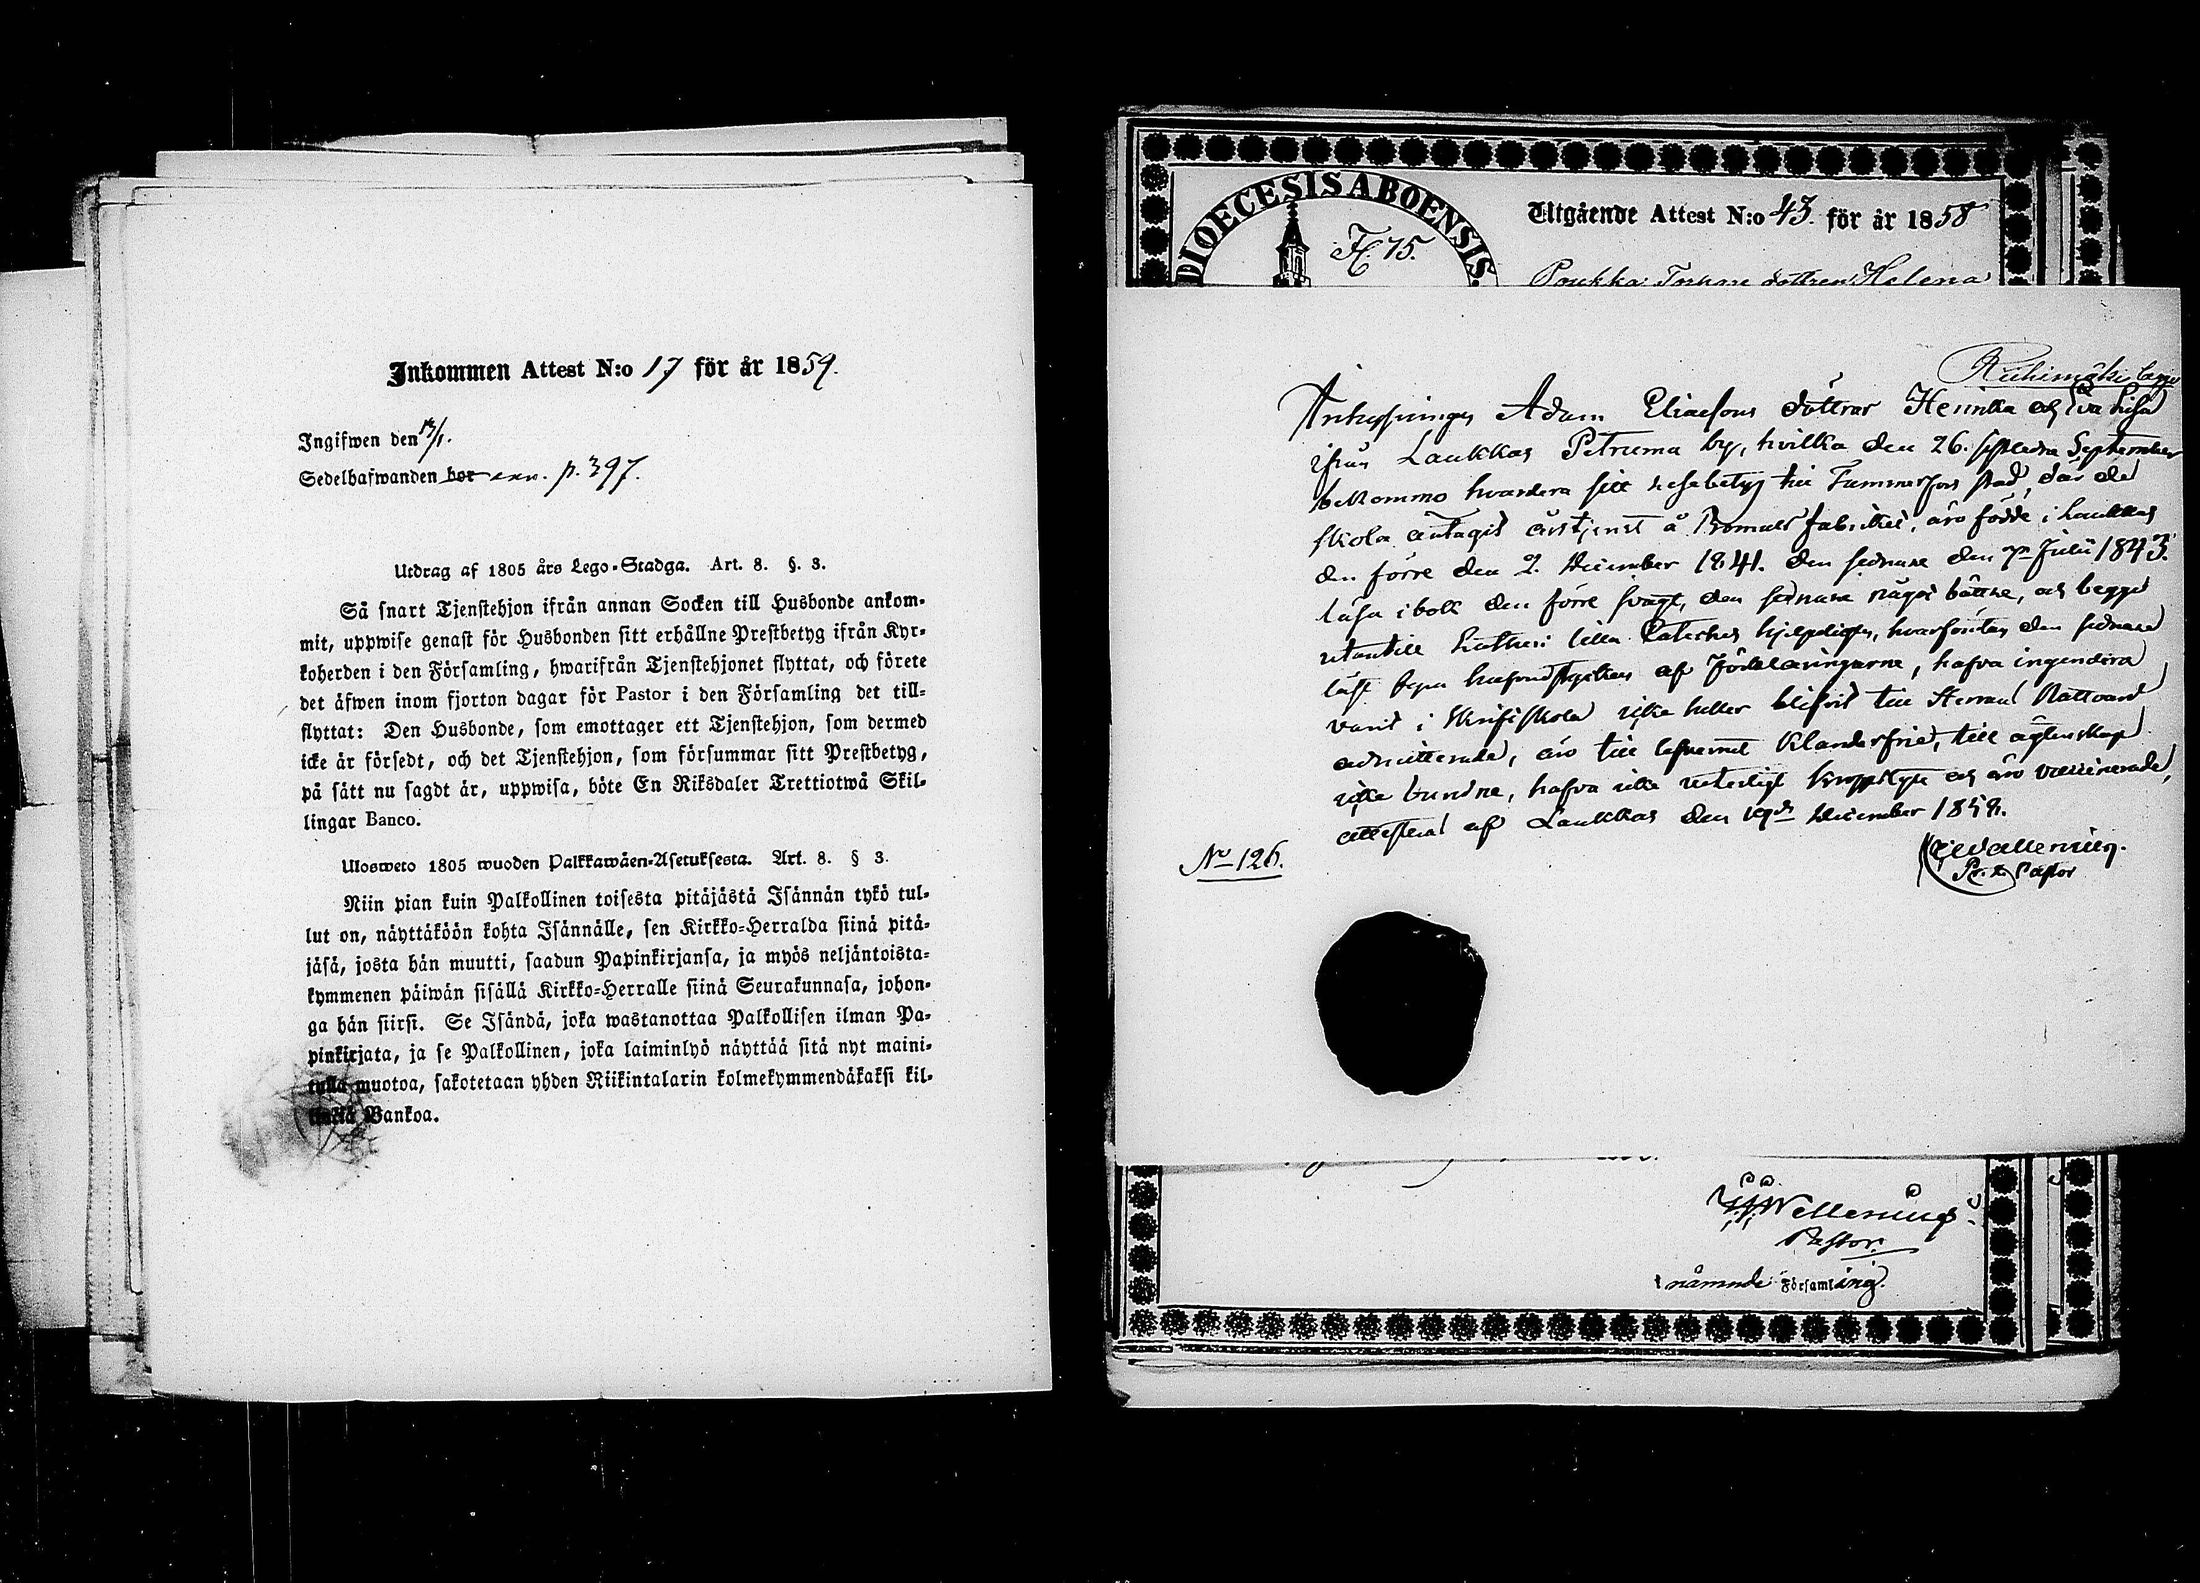 Inkommen Attest N:o 17 för år 1859.
Ingifwen den 13/1.
Sedelhafwanden bor exv. p. 397.
Utdrag af 1805 års Lego-Stadga. Art. 8. §. 3.
Så snart Tjenstehjon ifrån annan Socken till Husbonde ankom-
mit, uppwise genast för Husbonden sitt erhållne Prestbetyg ifrån Kyr-
koherden i den Församling, hwarifrån Tjenstehjonet flyttat, och förete
det äfwen inom fjorton dagar för Pastor i den Församling det till-
flyttat: Den Husbonde, som emottager ett Tjenstehjon, som dermed
icke är försedt, och det Tjenstehjon, som försummar sitt Prestbetyg,
på sätt nu sagdt är, uppwisa, böte En Riksdaler Trettiotwå Skil-
lingar Banco.
Ulosweto 1805 wuoden Palkkawäen-Asetuksesta. Art. 8. § 3.
Niin pian kuin Palkollinen toisesta pitäjästä Isännän tykö tul-
lut on, näyttäköön kohta Isännälle, sen Kirkko-Herralda siinä pitä-
jäsä, josta hän muutti, saadun Papinkirjansa, ja myös neljäntoista-
kymmenen päiwän sisällä Kirkko-Herralle siinä Seurakunnasa, johon-
ga hän siirsi. Se Isändä, joka wastanottaa Palkollisen ilman Pa-
pinkirjata, ja se Palkollinen, joka laiminlyö näyttää sitä nyt maini-
tulla muotoa, sakotetaan yhden Riikintalarin kolmekymmendäkaksi kil-
lingiä Bankoa.
DIOECESIS ABOENSIS.
F. 75.
Utgående Attest N:o 43. för år 1858
Poukka Torpare dottren Helena
Riihimäki
Inhysinges Adam Eliaesons döttrar Henrika och Eva Lisa
ifrån Laukkas Petruma by, hvilka den 26. September
bekommo hvardera sitt Lesebetyg till Tammerfors stad, der de
skola antagit årstjenst å Bomulls fabriket, äro födde i Laukkas
den förre den 2. December 1841. den sednare den 7de Julii 1843.
läsa i bok den förre svagt, den sednare något bättre, och begge
utantill Lutheri lilla Cateches hjelpligen, hvarförutan den sednare
läst hufvudstycken af Förklaringarne, hafva ingendera
varit i Skriftskola icke heller blifvit till Herrans Nattvard
admitterade, äro till lefvernet klanderfrie, till ägtenskap
icke bundne, hafva icke veterligt kroppslyte och äro vaccinerade,
attesteras af Laukkas den 19de December 1858.
Wallenius.
Pastor
No 126.
Wallenius
Pastor.
i nämnde Församling.